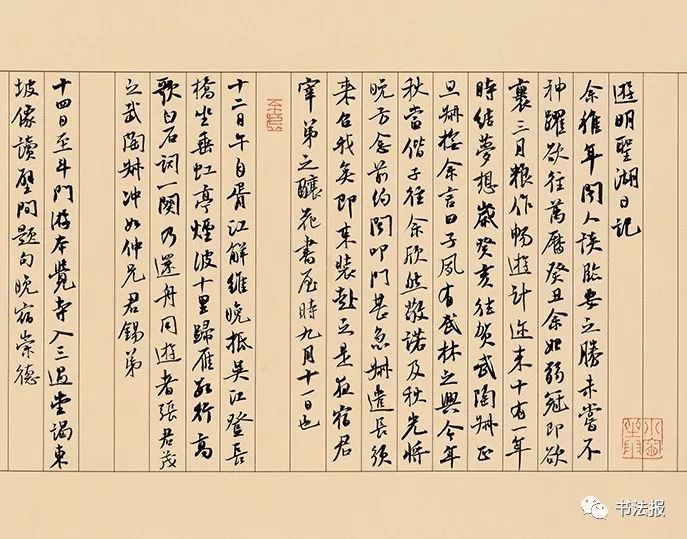 遊明聖湖日記
余稚年聞人談臨安之勝未嘗不
神躍欲往萬曆癸丑余始弱冠即欲
裹三月粮作暢遊計迩来十有一年
時結夢想歲癸亥往賀武陶姊正
旦姊揆余言曰子夙有武林之興今年
秋當偕子往余欣然敬諾及秋光將
晚方念前約聞叩門甚急姊遣長須
来召我矣即束裝赴之是夜宿君
宰弟之釀花書屋時九月十一日也
十二日午自胥江解維晚抵吳江登長
橋坐垂虹亭煙波十里歸雁數行高
歌白石詞一闋乃還舟同遊者張君茂
之武陶姊冲如仲兄君錫弟
十四日至斗門游本覺寺入三過堂謁東
坡像讀壁間題句晚宿崇德
书法报